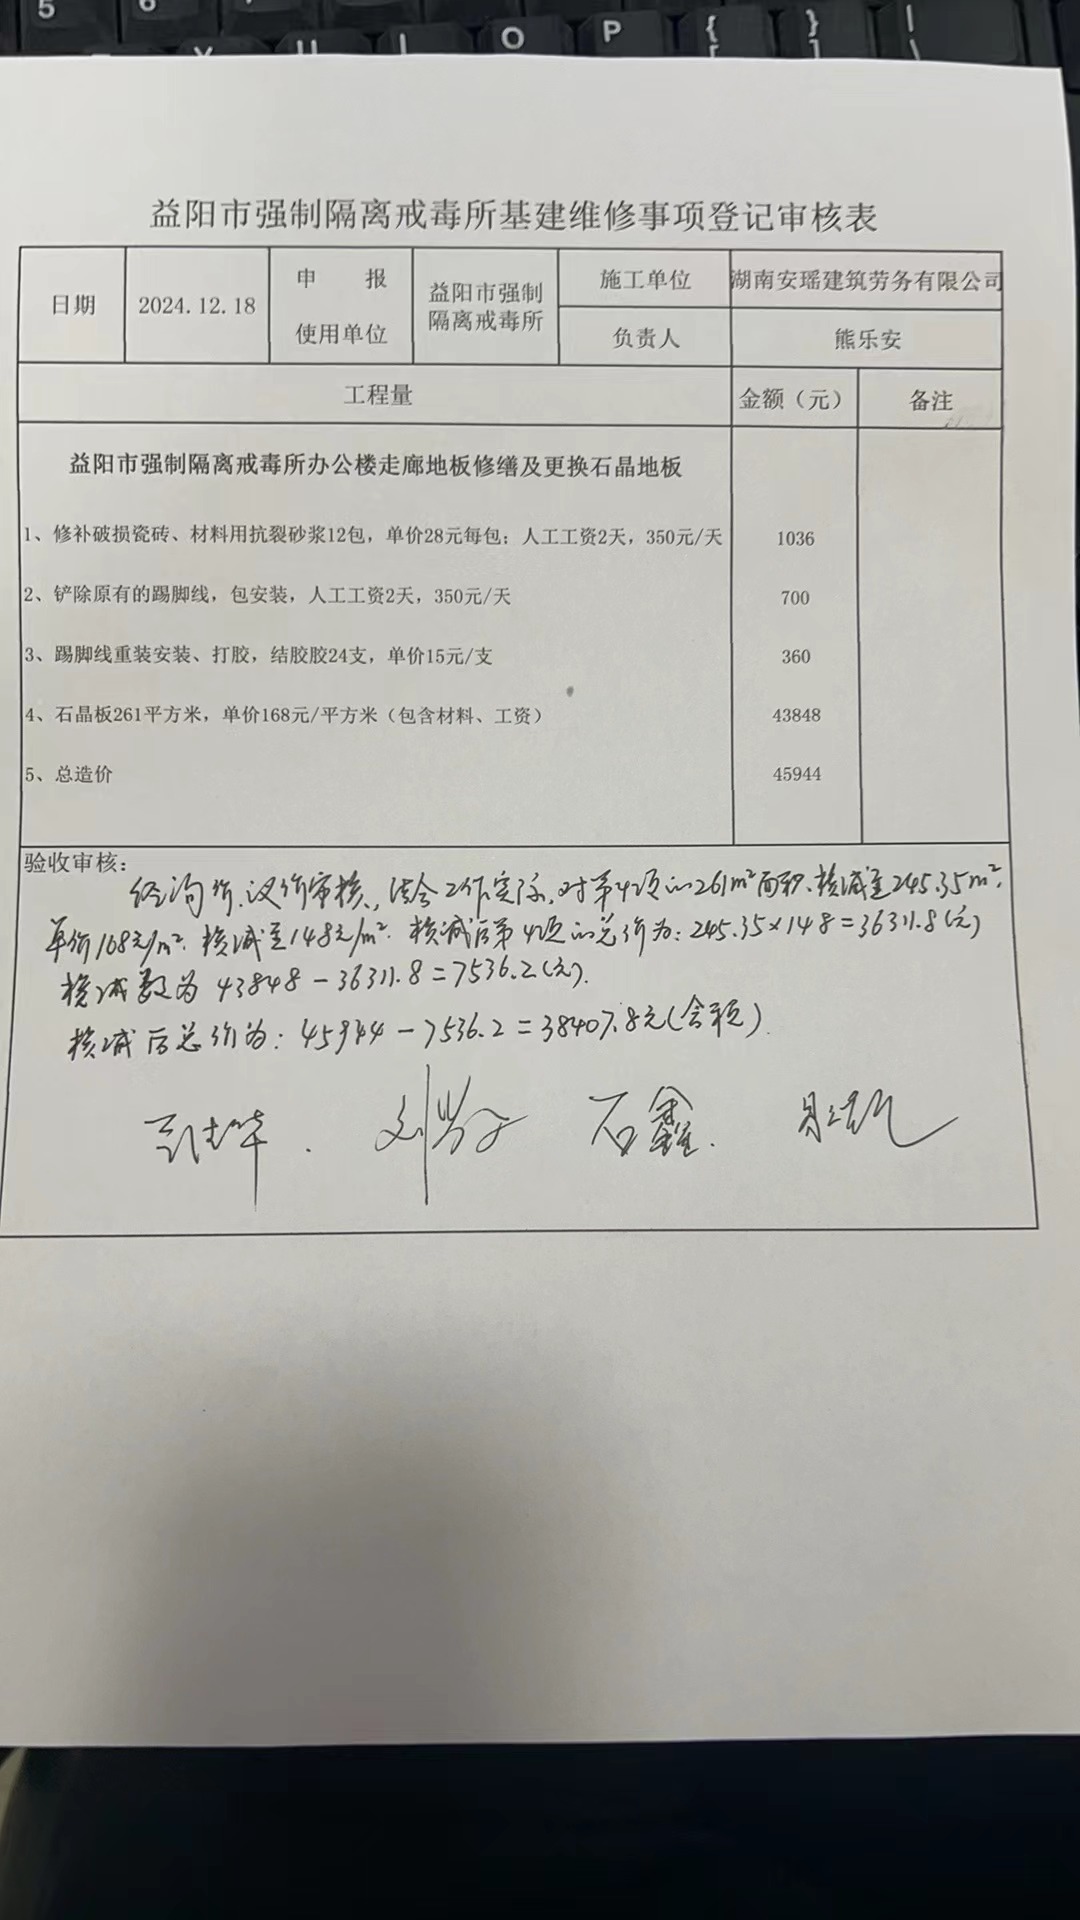 5 6
Y U I O P { [ } ] | \
益阳市强制隔离戒毒所基建维修事项登记审核表
日期 2024.12.18 申 报 使用单位 益阳市强制 隔离戒毒所 施工单位 湖南安瑶建筑劳务有限公司
负责人 熊乐安
工程量 金额（元） 备注
益阳市强制隔离戒毒所办公楼走廊地板修缮及更换石晶地板
1、修补破损瓷砖、材料用抗裂砂浆12包，单价28元每包；人工工资2天，350元/天 1036
2、铲除原有的踢脚线，包安装，人工工资2天，350元/天 700
3、踢脚线重装安装、打胶，结胶胶24支，单价15元/支 360
4、石晶板261平方米，单价168元/平方米（包含材料、工资） 43848
5、总造价 45944
验收审核：
经询价、议价审核，结合工作实际，对第4项的261m²面积，核减至245.35m²，
单价168元/m²，核减至148元/m²，核减后第4项的总价为：245.35×148=36311.8（元）
核减数为 43848-36311.8=7536.2（元）.
核减后总价为：45944-7536.2=38407.8元（含税）.
石鑫.